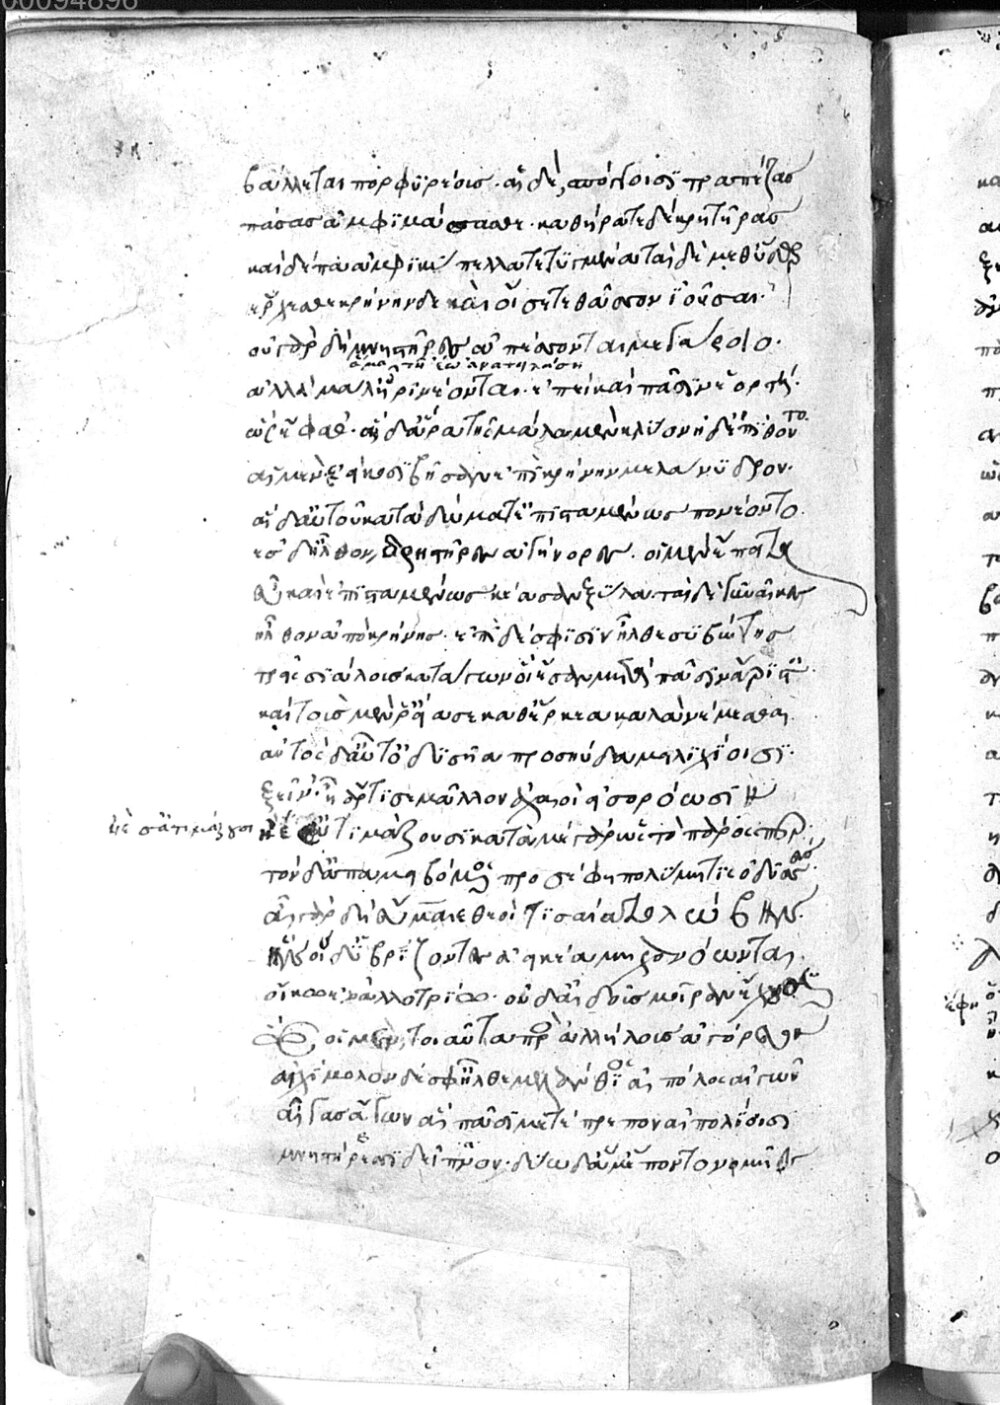 00094896
βάλλεται πορφυρέοις· αἱ δὲ σπόγγοισι τραπέζας
πάσας ἀμφιμάσασθε· καθήρατε δὲ κρητῆρας
καὶ δέπα ἀμφικύπελλα τετυγμένα ταὶ δὲ μεθ' ὕδωρ
ἔρχεσθε κρήνηνδε καὶ οἴσετε θᾶσσον ἰοῦσαι·
οὐ γὰρ δὴν μνηστῆρες ἀπέσσονται μεγάροιο·
ἀλλὰ μάλ' ἦρι νέονται· ἐπεὶ καὶ πᾶσιν ἑορτή·
ὣς ἔφαθ'· αἱ δ' ἄρα τῆς μάλα μὲν κλύον ἠδ' ἐπίθοντο
αἱ μὲν ἐείκοσι βῆσαν ἐπὶ κρήνην μελάνυδρον·
αἱ δ' αὐτοῦ κατὰ δώματ' ἐπισταμένως πονέοντο·
ἐς δ' ἦλθον δρηστῆρες ἀγήνορες· οἱ μὲν ἔπειτα
εὖ καὶ ἐπισταμένως κέασαν ξύλα ταὶ δὲ γυναῖκες
ἦλθον ἀπὸ κρήνης· ἐπὶ δέ σφισιν ἦλθε συβώτης
τρεῖς σιάλους κατάγων οἳ ἔσαν μετὰ πᾶσιν ἄριστοι
καὶ τοὺς μέν ῥ' εἴασε καθ' ἕρκεα καλὰ νέμεσθαι
αὐτὸς δ' αὖτ' Ὀδυσῆα προσηύδα μειλιχίοισι·
ξεῖν' ἦ ἄρ τί σε μᾶλλον ἀχαιοὶ εἰσορόωσιν
ἠέ σ' ἀτιμάζουσι
ἠέ σ' ἀτιμάζουσι κατὰ μέγαρ' ὡς τὸ πάρος περ·
τὸν δ' ἀπαμειβόμενος προσέφη πολύμητις ὀδυσσεύς
αἲ γὰρ δὴ εὔμαιε θεοὶ τισαίατο λώβην·
ἣν οἵδ' ὑβρίζοντες ἀεικέα μηχανόωνται·
οἴκῳ ἐν ἀλλοτρίῳ· οὐδ' αἰδοῦς μοῖραν ἔχουσιν
ὣς οἱ μὲν τοιαῦτα πρὸς ἀλλήλους ἀγόρευον
ἀγχίμολον δέ σφ' ἦλθε μελάνθιος αἰπόλος αἰγῶν
αἶγας ἄγων αἳ πᾶσι μετέπρεπον αἰπολίοισι
μνηστήρεσσι δεῖπνον· δύω δ' ἅμ' ἕποντο νομῆες